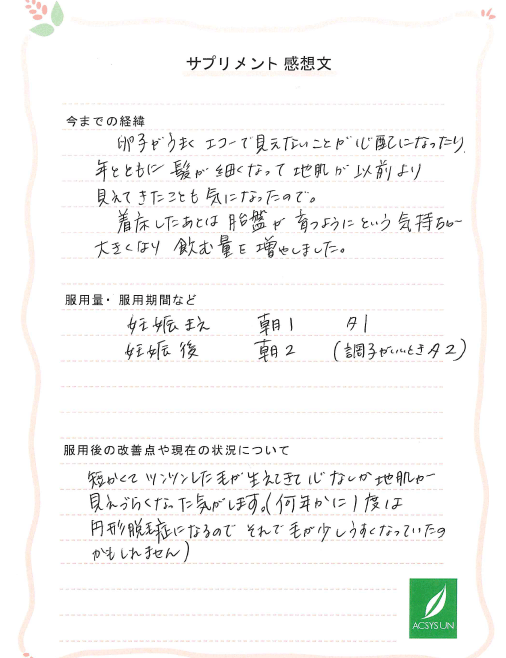 サプリメント 感想文
今までの経緯
卵子がうまく エコーで見えないことが心配になったり、
年とともに 髪が細くなって 地肌が以前より
見えてきたことも気になったので。
着床したあとは 胎盤が 育つようにという気持ちが
大きくなり 飲む量を増やしました。
服用量・服用期間など
妊娠まえ 朝1 夕1
妊娠後 朝2 (調子がいいとき夕2)
服用後の改善点や現在の状況について
短かくて ツンツンした毛が生えてきて 心なしか地肌が
見えづらくなった気がします。(何年かに1度は
円形脱毛症になるので それで毛が少しうすくなっていたの
かもしれません)
ACSYSUN